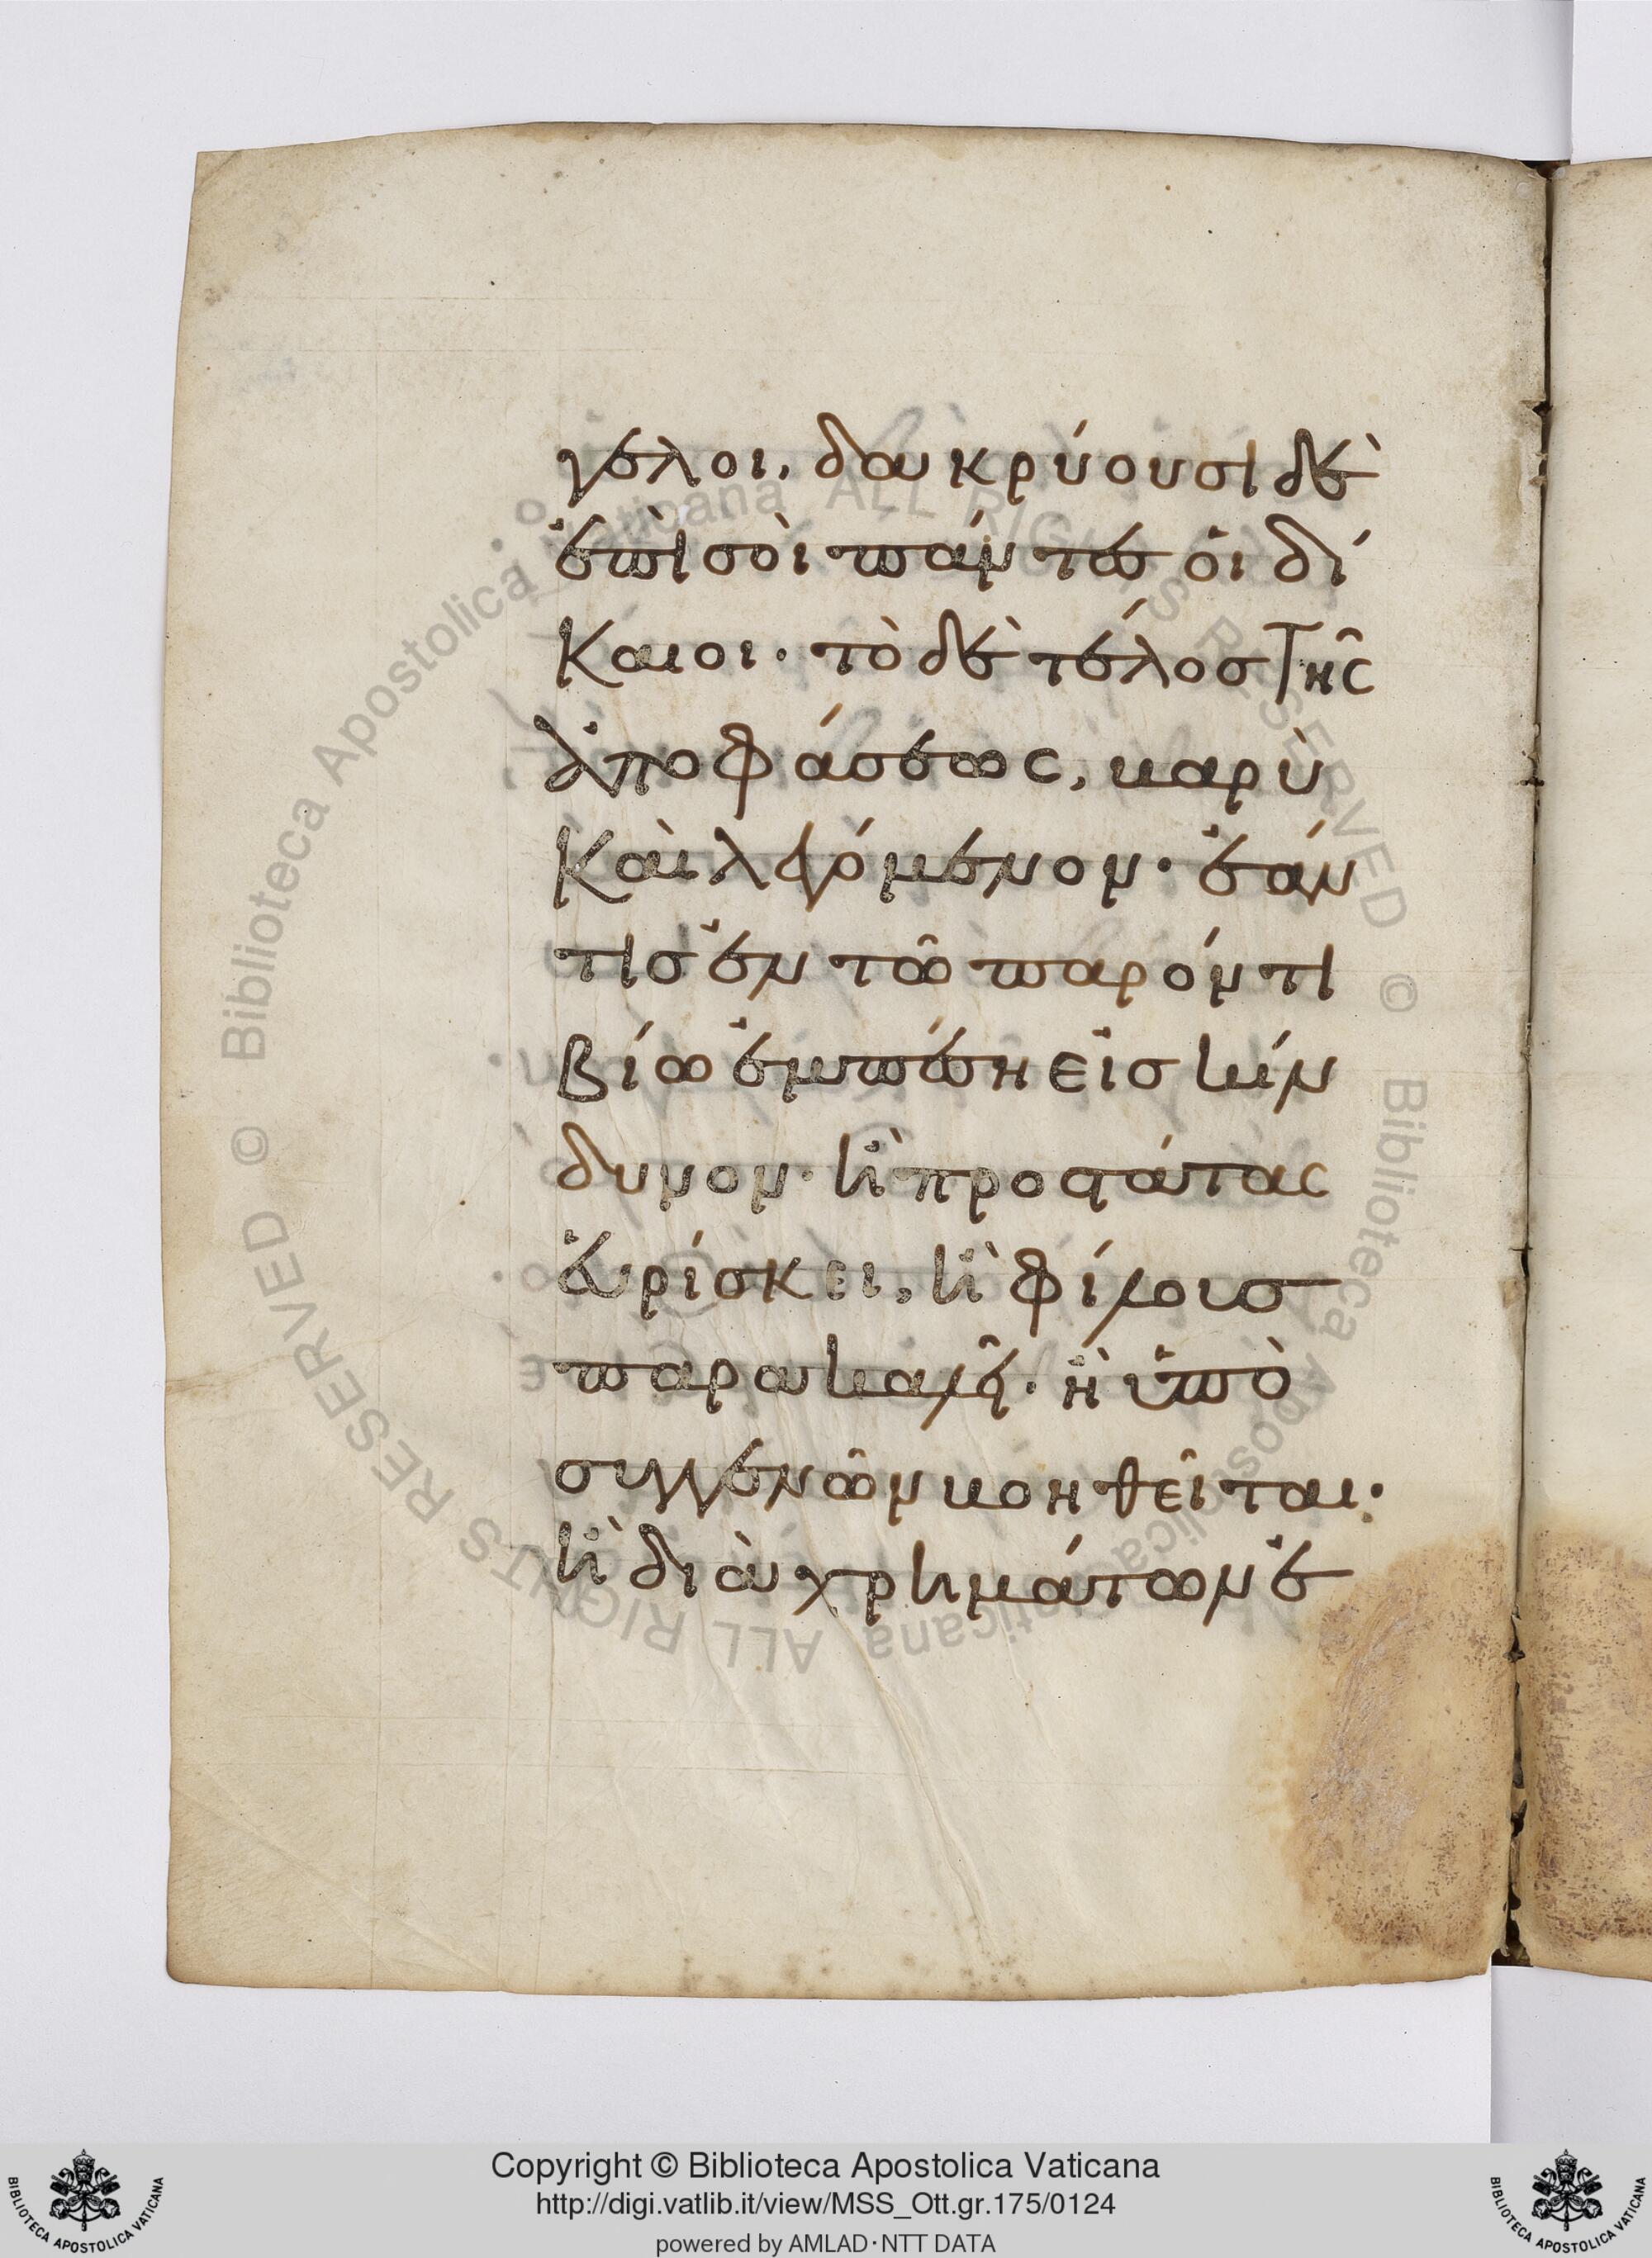 γελοι, δακρύουσι δὲ
ἐπὶ σοὶ πάντες οἱ δί
καιοι· τὸ δὲ τέλος τῆς
ἀποφάσεως, βαρὺ
καὶ λεγόμενον· ἐάν
τις ἐν τῶ παρόντι
βίω ἐμπέση εἰς κίν
δυνον· ἢ προστάτας
εὑρίσκει, ἢ φίλους
παρακαλεῖ· ἢ ὑπὸ
συγγενῶν βοηθεῖται·
ἢ διὰ χρημάτων ἐ
© Biblioteca Apostolica Vaticana ALL RIGHTS RESERVED © Biblioteca Apostolica Vaticana ALL RIGHTS RESERVED
Copyright © Biblioteca Apostolica Vaticana
http://digi.vatlib.it/view/MSS_Ott.gr.175/0124
powered by AMLAD·NTT DATA
BIBLIOTECA APOSTOLICA VATICANA
BIBLIOTECA APOSTOLICA VATICANA